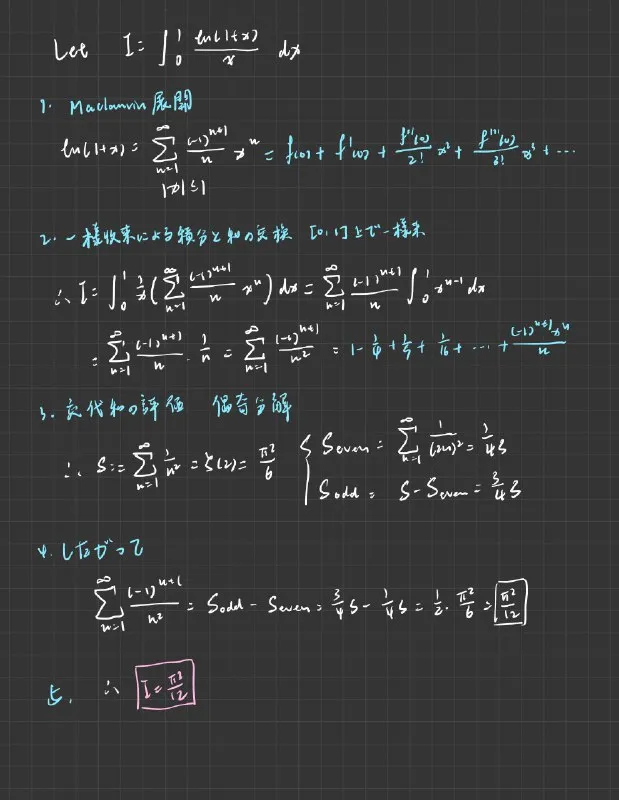 Let I = ∫₀¹ ln(1+x)/x dx
1. Maclaurin 展開
ln(1+x) = ∑_{n=1}^{∞} (-1)^{n+1}/n x^n = f(0) + f'(0) + f''(0)/2! x² + f'''(0)/3! x³ + ⋯
|x| ≤ 1
2. 一様収束による積分と和の交換 [0,1]上で一様束
∴ I = ∫₀¹ 1/x (∑_{n=1}^{∞} (-1)^{n+1}/n x^n) dx = ∑_{n=1}^{∞} (-1)^{n+1}/n ∫₀¹ x^{n-1} dx
= ∑_{n=1}^{∞} (-1)^{n+1}/n · 1/n = ∑_{n=1}^{∞} (-1)^{n+1}/n² = 1 - 1/4 + 1/9 + 1/16 + ⋯ + (-1)^{n+1} x^n/n
3. 交代和の評価 偶奇分解
∴ S := ∑_{n=1}^{∞} 1/n² = ζ(2) = π²/6 { S_even = ∑_{n=1}^{∞} 1/(2n)² = 1/4 S
S_odd = S - S_even = 3/4 S
4. したがって
∑_{n=1}^{∞} (-1)^{n+1}/n² = S_odd - S_even = 3/4 S - 1/4 S = 1/2 · π²/6 = π²/12
5. ∴ I = π²/12